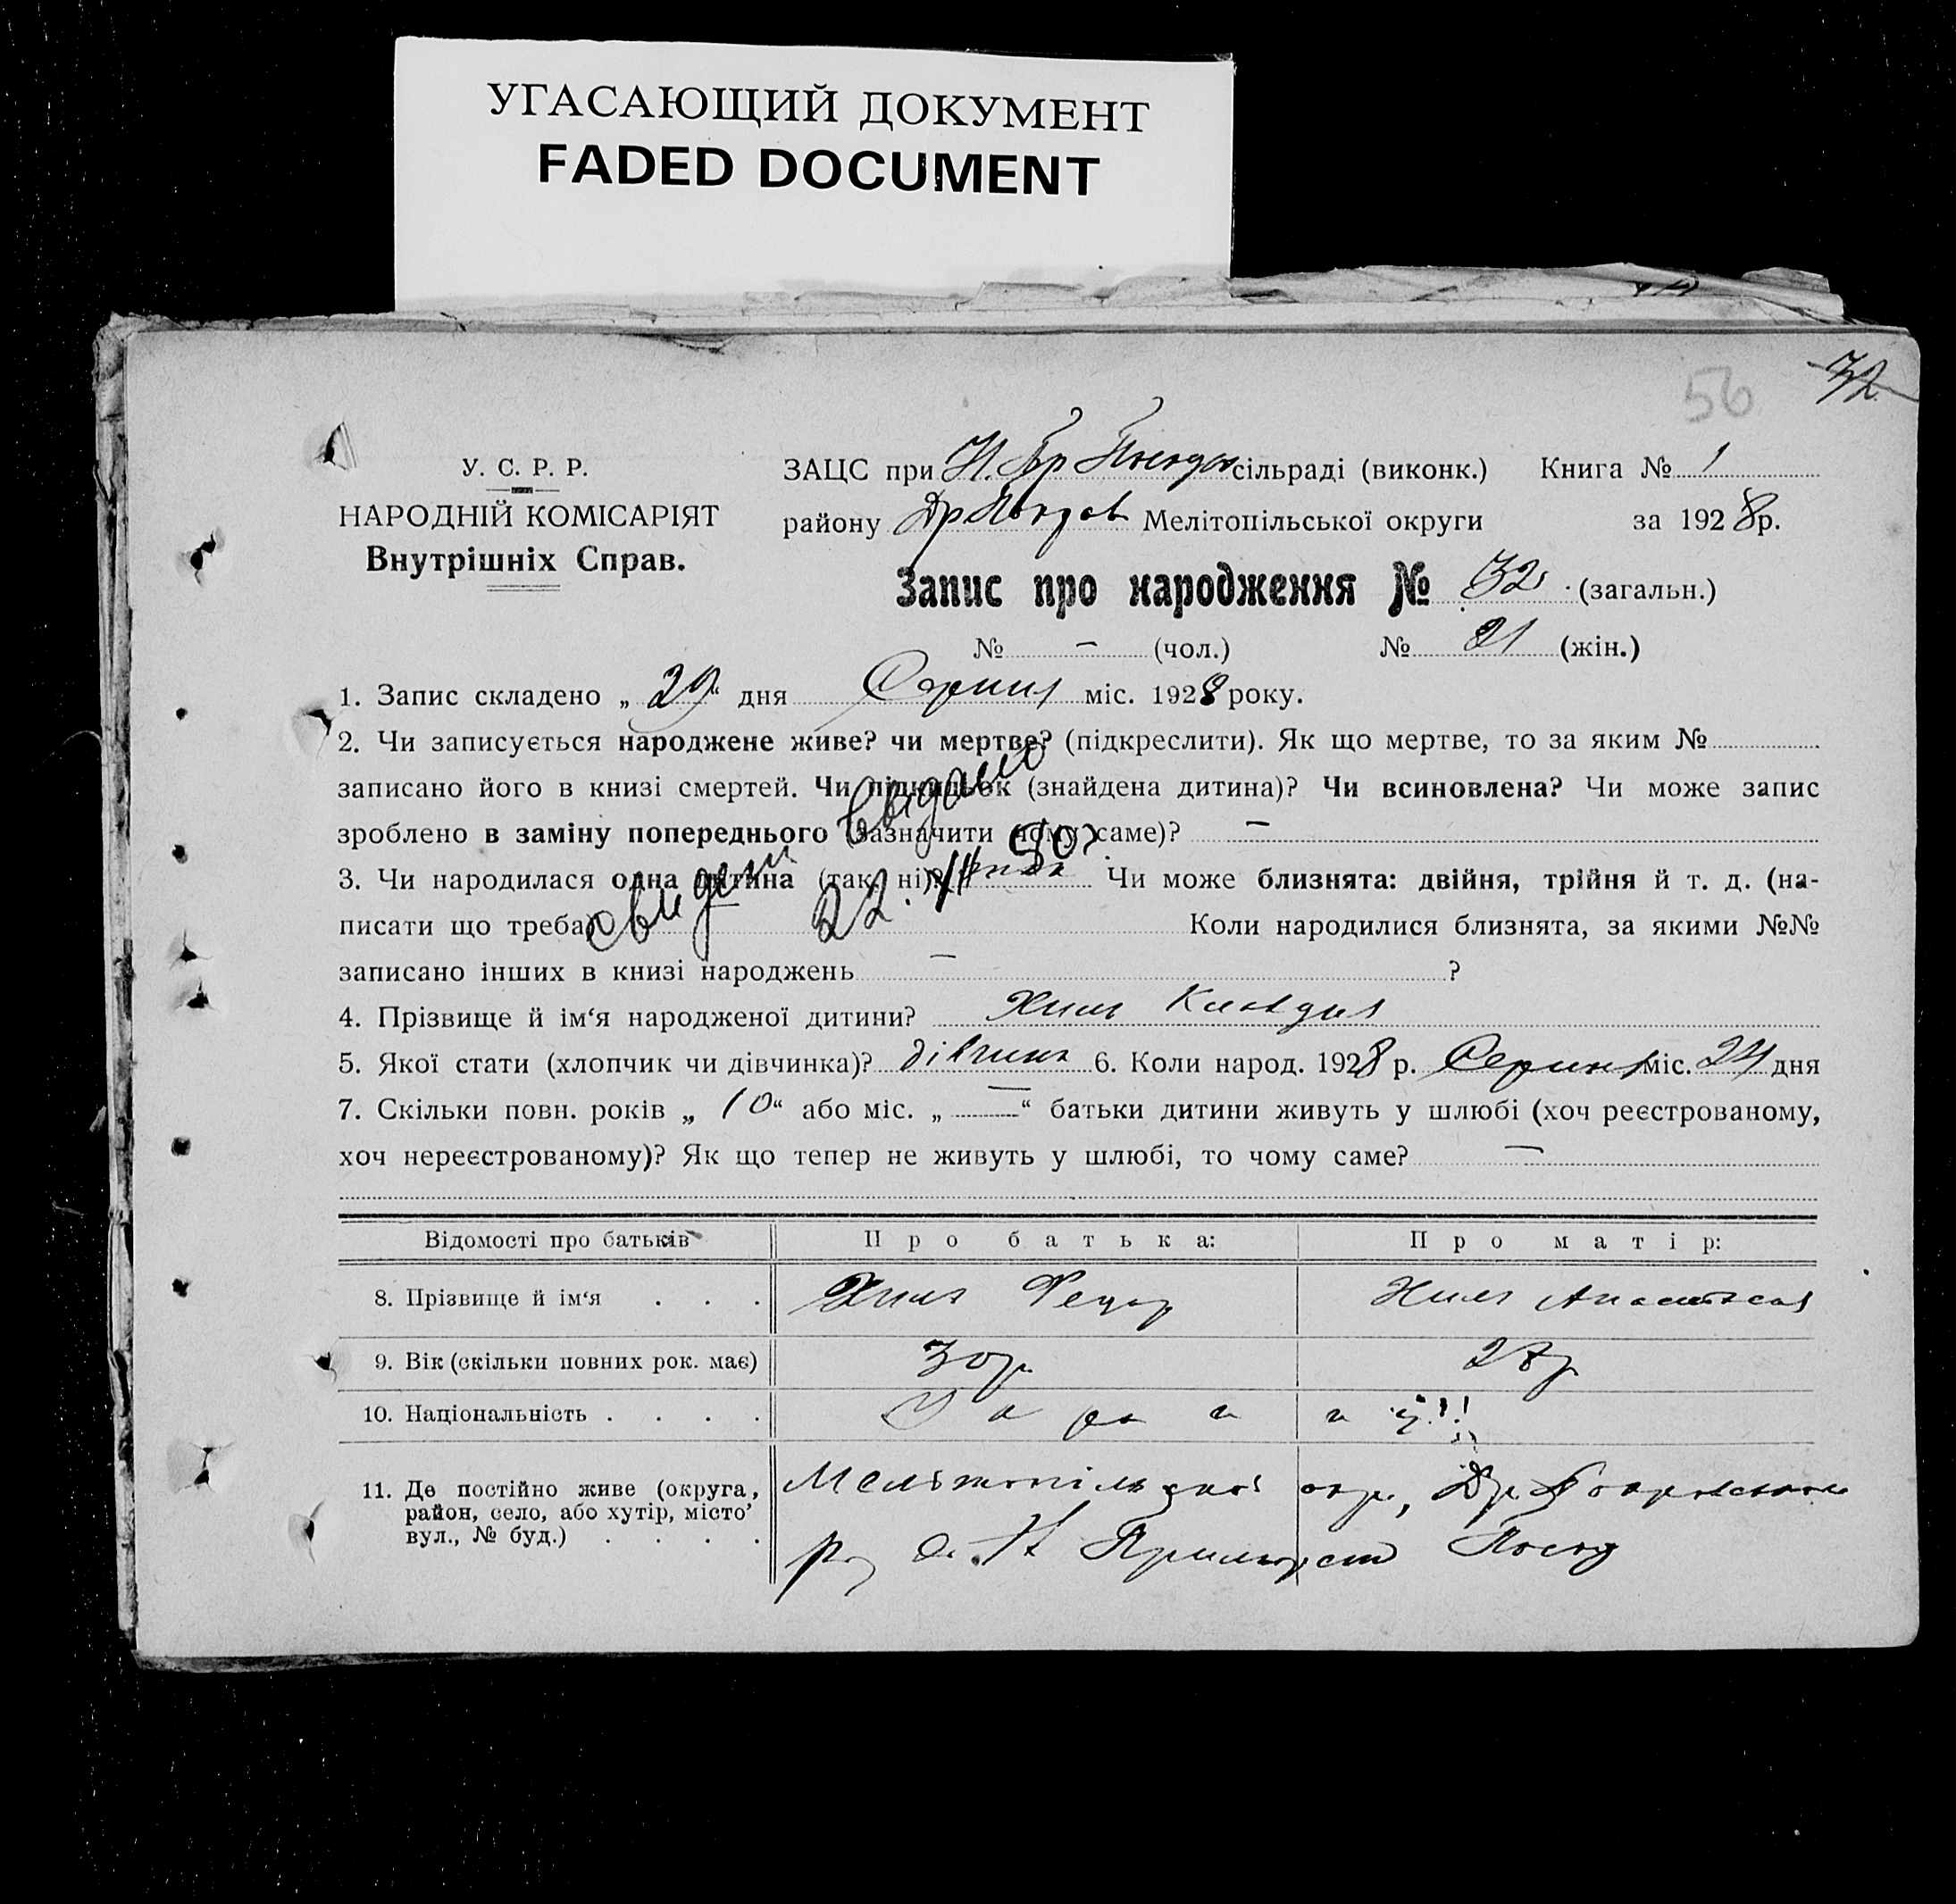 УГАСАЮЩИЙ ДОКУМЕНТ
FADED DOCUMENT
56 32
У. С. Р. Р.
НАРОДНІЙ КОМІСАРІЯТ
Внутрішніх Справ.
ЗАЦС при сільраді (виконк.) Книга № 1
району Мелітопільської округи за 1928 р.
Запис про народження № 32 (загальн.)
№ - (чол.) № 21 (жін.)
1. Запис складено „ 29 “ дня Серпня міс. 1928 року.
2. Чи записується народжене живе? чи мертве? (підкреслити). Як що мертве, то за яким №
записано його в книзі смертей. Чи підкидьок (знайдена дитина)? Чи всиновлена? Чи може запис
зроблено в заміну попереднього (зазначити чому саме)? —
3. Чи народилася одна дитина (так, ні)? Чи може близнята: двійня, трійня й т. д. (на-
писати що треба) Коли народилися близнята, за якими №№
записано інших в книзі народжень — ?
4. Прізвище й ім‘я народженої дитини? Хиля Клавдия
5. Якої стати (хлопчик чи дівчинка)? дівчина 6. Коли народ. 1928 р. Серпня міс. 24 дня
7. Скільки повн. років „ 10 “ або міс. „ — “ батьки дитини живуть у шлюбі (хоч реєстрованому,
хоч нереєстрованому)? Як що тепер не живуть у шлюбі, то чому саме? —
Відомості про батьків Про батька: Про матір:
8. Прізвище й ім‘я . . . Хиля Федор Хиля Анастасия
9. Вік (скільки повних рок. має) 30 р. 28 р
10. Національність . . . .
11. Де постійно живе (округа, Мелітопільської окр.,
район, село, або хутір, місто’
вул., № буд.) . . . .
видано
свидет
22.